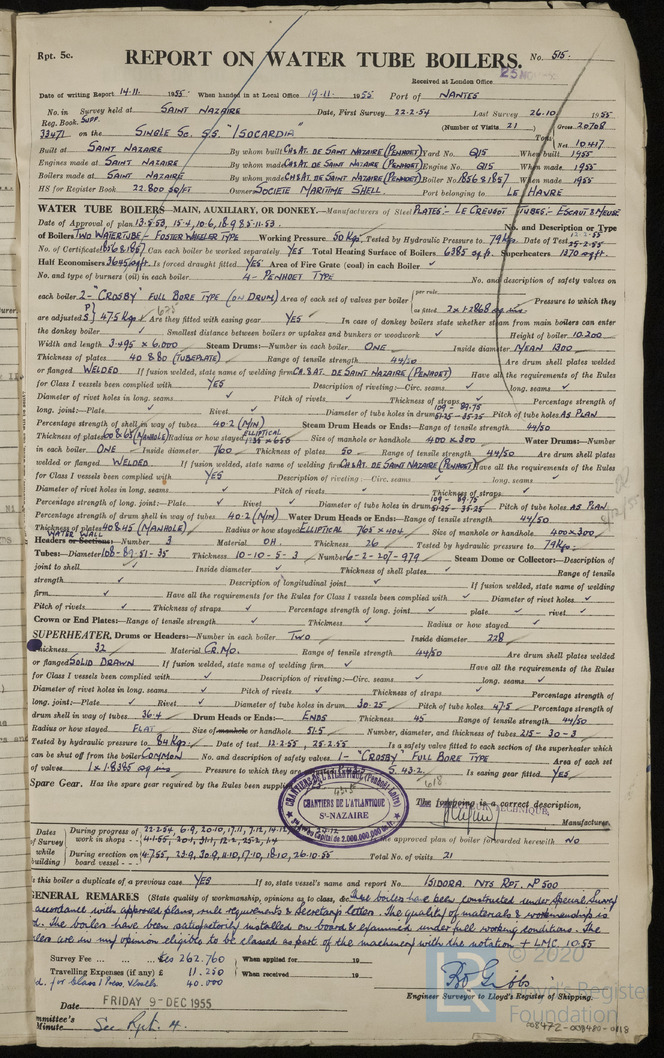 Rpt. 5c.
REPORT ON WATER TUBE BOILERS.
No. 515.
Received at London Office
Date of writing Report 14.11. 1955. When handed in at Local Office 19.11. 1955 Port of NANTES
No. in Survey held at SAINT NAZAIRE Date, First Survey 22.2.54 Last Survey 26.10 1955
Reg. Book. SUPP. (Number of Visits 21) Gross 20708
33471 on the SINGLE SC. S.S. "ISOCARDIA" Tons Net 10417
Built at SAINT NAZAIRE By whom built CHS AT. DE SAINT NAZAIRE (PENHOET) Yard No. Q15 When built 1955
Engines made at SAINT NAZAIRE By whom made CHS AT. DE SAINT NAZAIRE (PENHOET) Engine No. Q15 When made 1955
Boilers made at SAINT NAZAIRE By whom made CHS AT. DE SAINT NAZAIRE (PENHOET) Boiler No. 1856 & 1857 When made 1955
HS for Register Book 22.800 sq/ft Owner SOCIETE MARITIME SHELL. Port belonging to LE HAVRE
WATER TUBE BOILERS—MAIN, AUXILIARY, OR DONKEY.—Manufacturers of Steel PLATES:- LE CREUSOT TUBES:- ESCAUT & MEUSE
Date of Approval of plan 13.5.53, 15.4, 10.6, 18.9 & 5.11.53. No. and Description or Type
of Boilers TWO WATERTUBE - FOSTER WHEELER TYPE Working Pressure 50 Kgs. Tested by Hydraulic Pressure to 79 Kgs. Date of Test 12-2-55 25-2-55
No. of Certificate 1856 & 1857 Can each boiler be worked separately YES Total Heating Surface of Boilers 6385 sq.ft. Superheaters 1370 sq.ft.
Half Economisers 3645 sq.ft. Is forced draught fitted YES Area of Fire Grate (coal) in each Boiler
No. and type of burners (oil) in each boiler 4 - PENHOET TYPE No. and description of safety valves on
each boiler 2 - "CROSBY" FULL BORE TYPE (ON DRUM) Area of each set of valves per boiler per rule as fitted 2 x 1.2868 sq ins Pressure to which they
are adjusted 47.5 Kgs 675 Are they fitted with easing gear YES In case of donkey boilers state whether steam from main boilers can enter
the donkey boiler Smallest distance between boilers or uptakes and bunkers or woodwork Height of boiler 10.200
Width and length 3.495 x 6.000 Steam Drums:—Number in each boiler ONE Inside diameter MEAN 1300
Thickness of plates 40 & 80 (TUBEPLATE) Range of tensile strength 44/50 Are drum shell plates welded
or flanged WELDED If fusion welded, state name of welding firm CHS AT. DE SAINT NAZAIRE (PENHOET) Have all the requirements of the Rules
for Class I vessels been complied with YES Description of riveting:—Circ. seams long. seams
Diameter of rivet holes in long. seams Pitch of rivets Thickness of straps Percentage strength of
long. joint:—Plate Rivet Diameter of tube holes in drum 109 - 89.75 51.25 - 35.25 Pitch of tube holes AS PLAN
Percentage strength of shell in way of tubes 40.2 (MIN) Steam Drum Heads or Ends:—Range of tensile strength 44/50
Thickness of plates 60 & 65 (MANHOLE) Radius or how stayed ELLIPTICAL 1135 x 650 Size of manhole or handhole 400 x 300 Water Drums:—Number
in each boiler ONE Inside diameter 760 Thickness of plates 50 Range of tensile strength 44/50 Are drum shell plates
welded or flanged WELDED If fusion welded, state name of welding firm CHS AT. DE SAINT NAZAIRE (PENHOET) Have all the requirements of the Rules
for Class I vessels been complied with YES Description of riveting:—Circ. seams long. seams
Diameter of rivet holes in long. seams Pitch of rivets Thickness of straps
Percentage strength of long. joint:—Plate Rivet Diameter of tube holes in drum 109 - 89.75 51.25 - 35.25 Pitch of tube holes AS PLAN
Percentage strength of drum shell in way of tubes 40.2 (MIN) Water Drum Heads or Ends:—Range of tensile strength 44/50
Thickness of plates 40 & 45 (MANHOLE) Radius or how stayed ELLIPTIC 765 x 404 Size of manhole or handhole 400 x 300
WATER WALL
Headers or Sections:—Number 3 Material OH. Thickness 26 Tested by hydraulic pressure to 79 Kgs.
Tubes:—Diameter 108-89-51-35 Thickness 10-10-5-3 Number 6-2-207-979 Steam Dome or Collector:—Description of
joint to shell Inside diameter Thickness of shell plates Range of tensile
strength Description of longitudinal joint If fusion welded, state name of welding
firm Have all the requirements of the Rules for Class I vessels been complied with Diameter of rivet holes
Pitch of rivets Thickness of straps Percentage strength of long. joint plate rivet
Crown or End Plates:—Range of tensile strength Thickness Radius or how stayed
SUPERHEATER. Drums or Headers:—Number in each boiler TWO Inside diameter 228
Thickness 32 Material CR. MO. Range of tensile strength 44/50 Are drum shell plates welded
or flanged SOLID DRAWN If fusion welded, state name of welding firm Have all the requirements of the Rules
for Class I vessels been complied with Description of riveting:—Circ. seams long. seams
Diameter of rivet holes in long. seams Pitch of rivets Thickness of straps Percentage strength of
long. joint:—Plate Rivet Diameter of tube holes in drum 30.25 Pitch of tube holes 47.5 Percentage strength of
drum shell in way of tubes 36.4 Drum Heads or Ends:— ENDS Thickness 45 Range of tensile strength 44/50
Radius or how stayed FLAT Size of manhole or handhole 51.5 Number, diameter, and thickness of tubes 215 - 30 - 3
Tested by hydraulic pressure to 84 Kgs. Date of test 12.2.55, 25.2.55 Is a safety valve fitted to each section of the superheater which
can be shut off from the boiler COMMON No. and description of safety valves 1 - "CROSBY" FULL BORE TYPE Area of each set
of valves 1 x 1.8385 sq ins Pressure to which they are adjusted 43.2 618 Is easing gear fitted YES
Spare Gear. Has the spare gear required by the Rules been supplied
CHANTIERS DE L'ATLANTIQUE (Penhoët-Loire)
CHANTIERS DE L'ATLANTIQUE
ST-NAZAIRE
au Capital de 2.000.000.000 de
The foregoing is a correct description,
Manufacturer.
Dates of Survey while building
During progress of work in shops - - 22.2.54, 6.9, 20.10, 17.11, 7.12, 14.12
4.1.55, 20.1, 31.1, 12.2, 25.2, 1.4
During erection on board vessel - - - 4.7.55, 23.9, 30.9, 11.10, 17.10, 18.10, 26.10.55
the approved plan of boiler forwarded herewith NO
Total No. of visits 21
Is this boiler a duplicate of a previous case YES If so, state vessel's name and report No. ISIDORA. NTS RPT. No 500
GENERAL REMARKS (State quality of workmanship, opinions as to class, &c. These boilers have been constructed under Special Survey
accordance with approved plans, rule requirements & Secretary's letter. The quality of materials & workmanship is
The boilers have been satisfactorily installed on board & examined under full working conditions. The
are in my opinion eligible to be classed as part of the machinery with the notation + LMC. 10.55
Survey Fee ... ... £ 262.760 When applied for 19
Travelling Expenses (if any) £ 11.250 When received 19
for Class 1 Press. Vessels 40.000
Engineer Surveyor to Lloyd's Register of Shipping.
Date FRIDAY 9 - DEC 1955
Committee's
Minute See Rpt. 4.
© 2020
Lloyd's Register
Foundation
008472-008480-0118